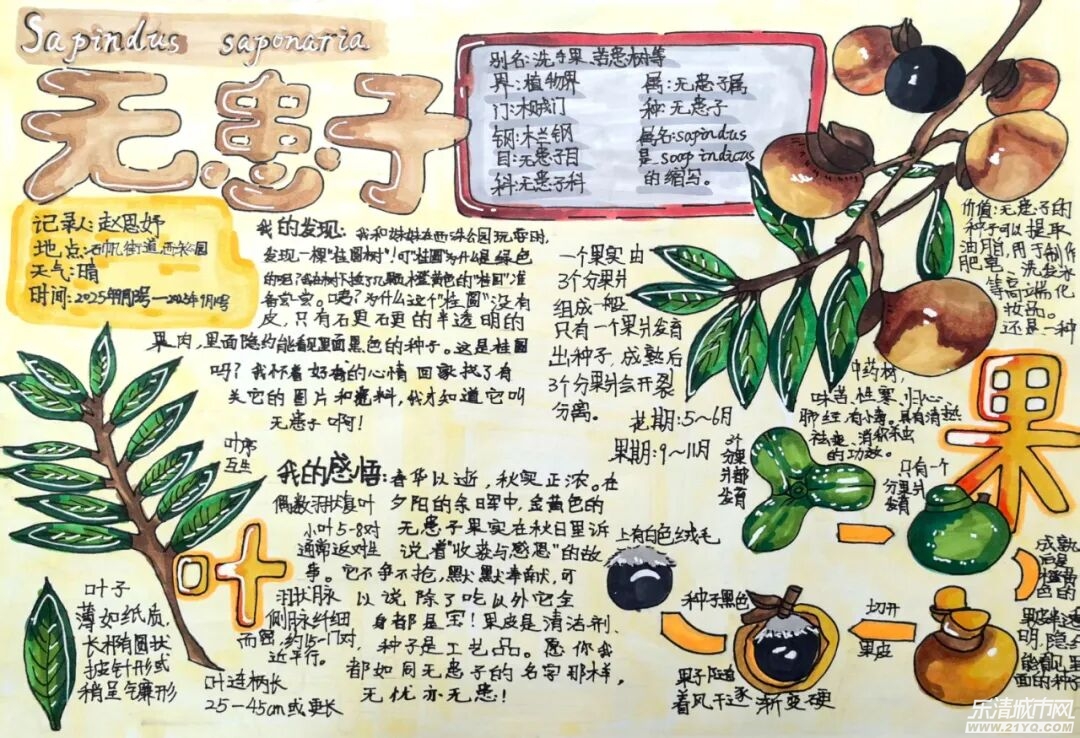 Sapindus saponaria
无患子
别名:洗手果、苦患树等
界:植物界
门:木贼门
钢:木兰钢
目:无患子目
科:无患子科
属:无患子属
种:无患子
属名:sapindus
是soap indicus
的缩写。
记录人:赵思妤
地点:石帆街道西沐公园
天气:晴
我的发现:我和妹妹在西沐公园玩耍时,
发现一棵"桂圆树"!可"桂圆"为什么是绿色
皮,只有石更石更的半透明的
果肉,里面隐约能看见里面黑色的种子。这是桂圆
吗?我怀着好奇的心情回家找了有
关它的图片和资料,我才知道它叫
无患子啊!
一个果实由
3个分果爿
组成一般
只有一个果爿发育
出种子,成熟后
3个分果爿会开裂
分离。
花期:5~6月
果期:9~11月
价值:无患子的
种子可以提取
油脂,用于制作
肥皂、洗发水
等高端化
妆品。
还是一种
中药材,
味苦、性寒、归心、
肺经,有小毒。具有清热
祛痰、消积杀虫
的功效。
果
叶
叶序
互生
偶数羽状复叶
小叶5-8对
通常近对生
羽状脉
侧脉纤细
而密,约15-17对,
近平行。
叶连柄长
25-45cm或更长
叶子
薄如纸质
长椭圆状
披针形或
稍呈镰形
我的感悟:春华以逝,秋实正浓。在
夕阳的余晖中,金黄色的
无患子果实在秋日里诉
说着"收获与感恩"的故
事。它不争不抢,默默奉献,可
以说除了吃以外它全
身都是宝!果皮是清洁剂、
种子是工艺品。愿你我
都如同无患子的名字那样,
无忧亦无患!
3个
分果爿
都发育
只有一个
分果爿
发育
成熟
后是
橙黄
色的
果皮半透
明,隐约
能看见里
面的种子
切开
果皮
种子黑色
上有白色绒毛
果子随
着风干逐
渐变硬
乐清城市网
WWW.21YQ.COM